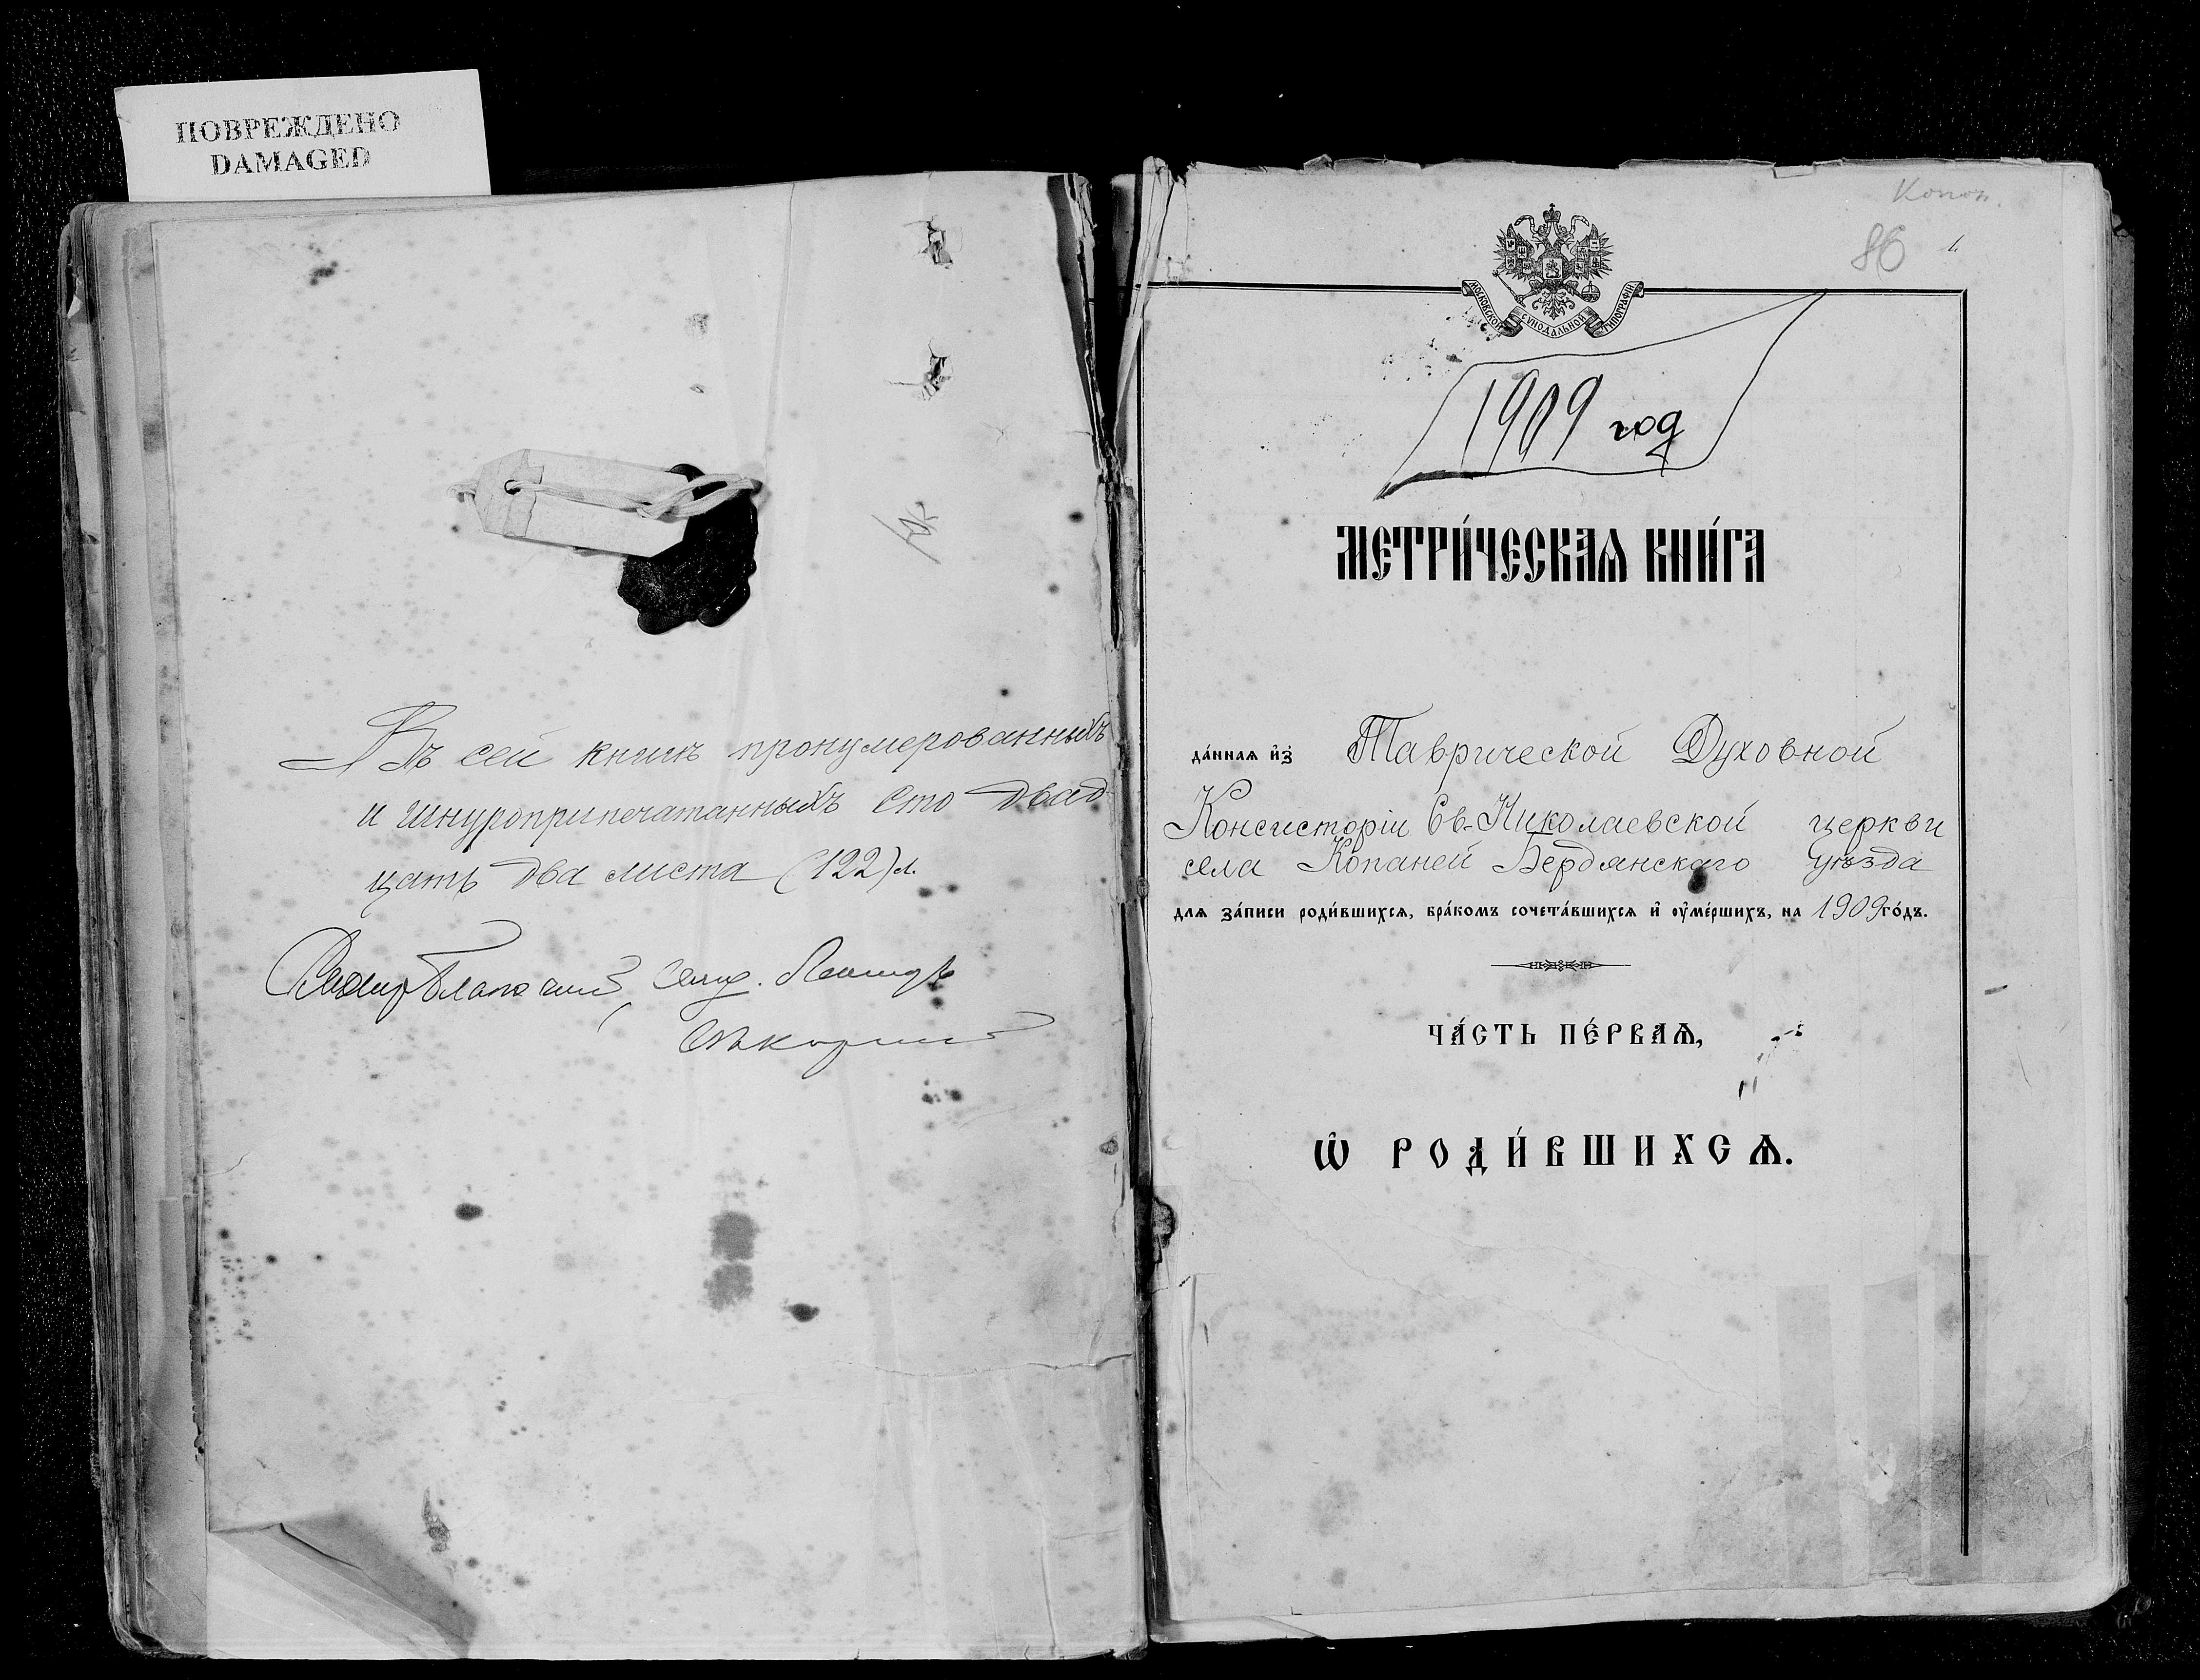 ПОВРЕЖДЕНО
DAMAGED
Въ сей книгѣ пронумерованныхъ
и шнуроприпечатанныхъ сто двад
цать два листа (122) л.
Копан.
86
1
МОСКОВСКОЙ СѴНОДАЛЬНОЙ ТИПОГРАФІИ
1909 год
МЕТРИ́ЧЕСКАѦ КНИ́ГА
да́ннаѧ и҆з̾ Таврической Духовной
Консисторіи Св.-Николаевской церкви
села Копаней Бердянскаго уѣзда
длѧ за́писи роди́вшихсѧ, бра́комъ сочета́вшихсѧ и҆ ᲂу҆ме́ршихъ, на 1909 го́дъ.
ЧА́СТЬ ПЕ́РВАѦ,
Ѽ РОДИ́ВШИХСѦ.